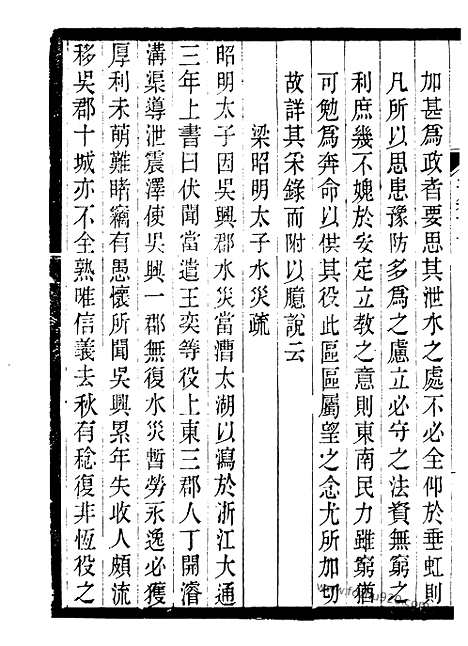 加甚爲政者要思其泄水之處不必全仰於垂虹則
凡所以思患豫防多爲之慮立必守之法資無窮之
利庶幾不媿於安定立教之意則東南民力雖窮猶
可勉爲奔命以供其役此區區屬望之念尤所加切
故詳其采錄而附以臆說云
梁昭明太子水災疏
昭明太子因吳興郡水災當漕太湖以瀉於浙江大通
三年上書曰伏聞當遣王奕等役上東三郡人丁開濬
溝渠導泄震澤使吳興一郡無復水災暫勞永逸必獲
厚利未萌難睹竊有愚懷所聞吳興累年失收人頗流
移吳郡十城亦不全熟唯信義去秋有稔復非恆役之